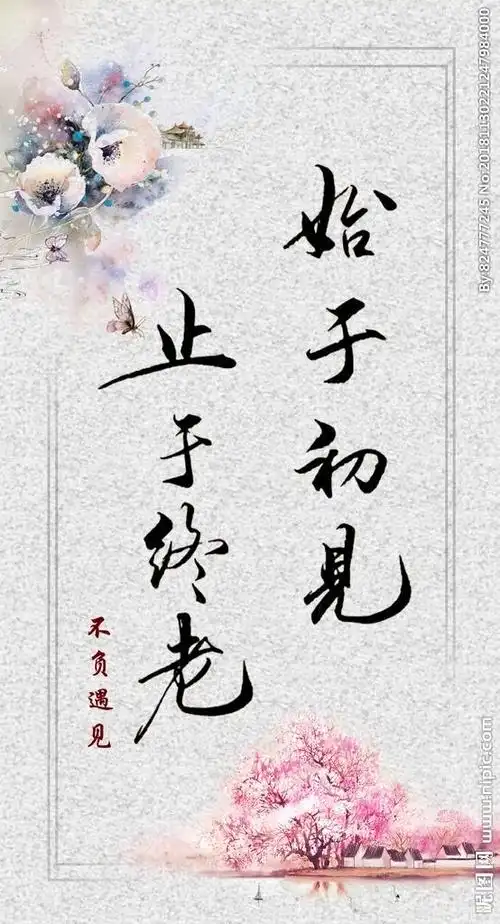 始于初見
止于终老
不负遇见
By:824777245 No:20181130221247984000
昵图网 www.nipic.com